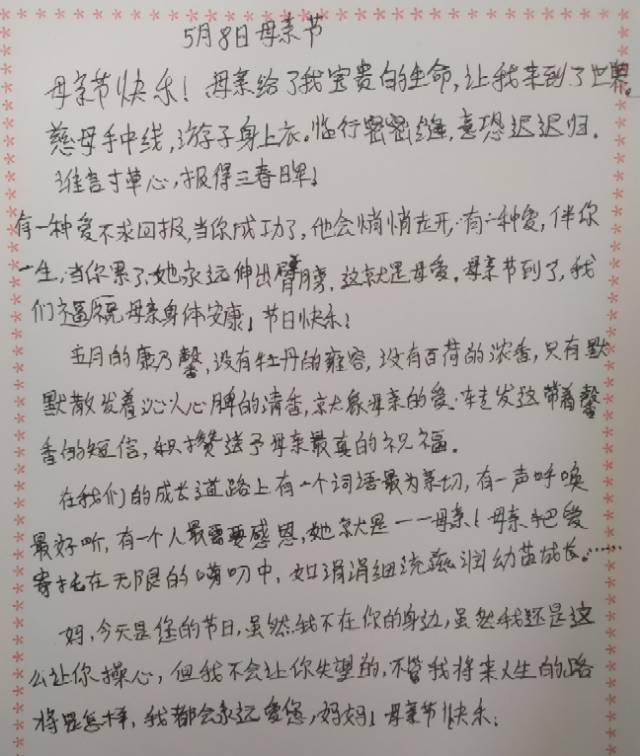 5月8日母亲节
母亲节快乐！母亲给了我宝贵的生命，让我来到了世界。
慈母手中线，游子身上衣。临行密密缝，意恐迟迟归。
谁言寸草心，报得三春晖！
有一种爱不求回报，当你成功了，他会悄悄走开，有一种爱，伴你
一生，当你累了，她永远伸出臂膀，这就是母爱。母亲节到了，我
们福祝母亲身体安康！节日快乐！
五月的康乃馨，没有牡丹的雍容，没有百荷的浓香，只有默
默散发着沁人心脾的清香，就像母亲的爱。转发这带着馨
香的短信，积攒送予母亲最真的祝福。
在我们的成长道路上有一个词语最为亲切，有一声呼唤
最好听，有一个人最需要感恩，她就是——母亲！母亲把爱
寄托在无限的嘀叨中，如涓涓细流滋润幼苗成长。……
妈，今天是您的节日，虽然我不在你的身边，虽然我还是这
么让你操心，但我不会让你失望的，不管我将来人生的路
将是怎样，我都会永远爱您，妈妈！母亲节快乐！